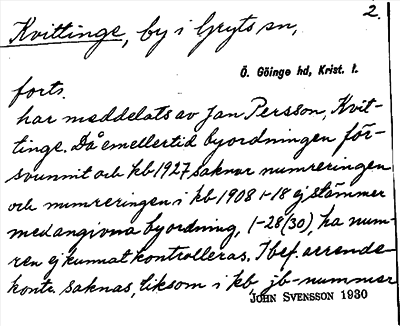 2.
Kvittinge, by i Gryts sn,
Ö. Göinge hd, Krist. l.
forts.
har meddelats av Jan Persson, Kvit-
tinge. Då emellertid byordningen för-
svunnit och kb 1927 saknar numreringen
och numreringen i kb 1908 1-18 ej stämmer
med angivna byordning, 1-28(30), ha num-
ren ej kunnat kontrolleras. I bef. arrende-
kontr. saknas, liksom i kb jb-nummer
JOHN SVENSSON 1930